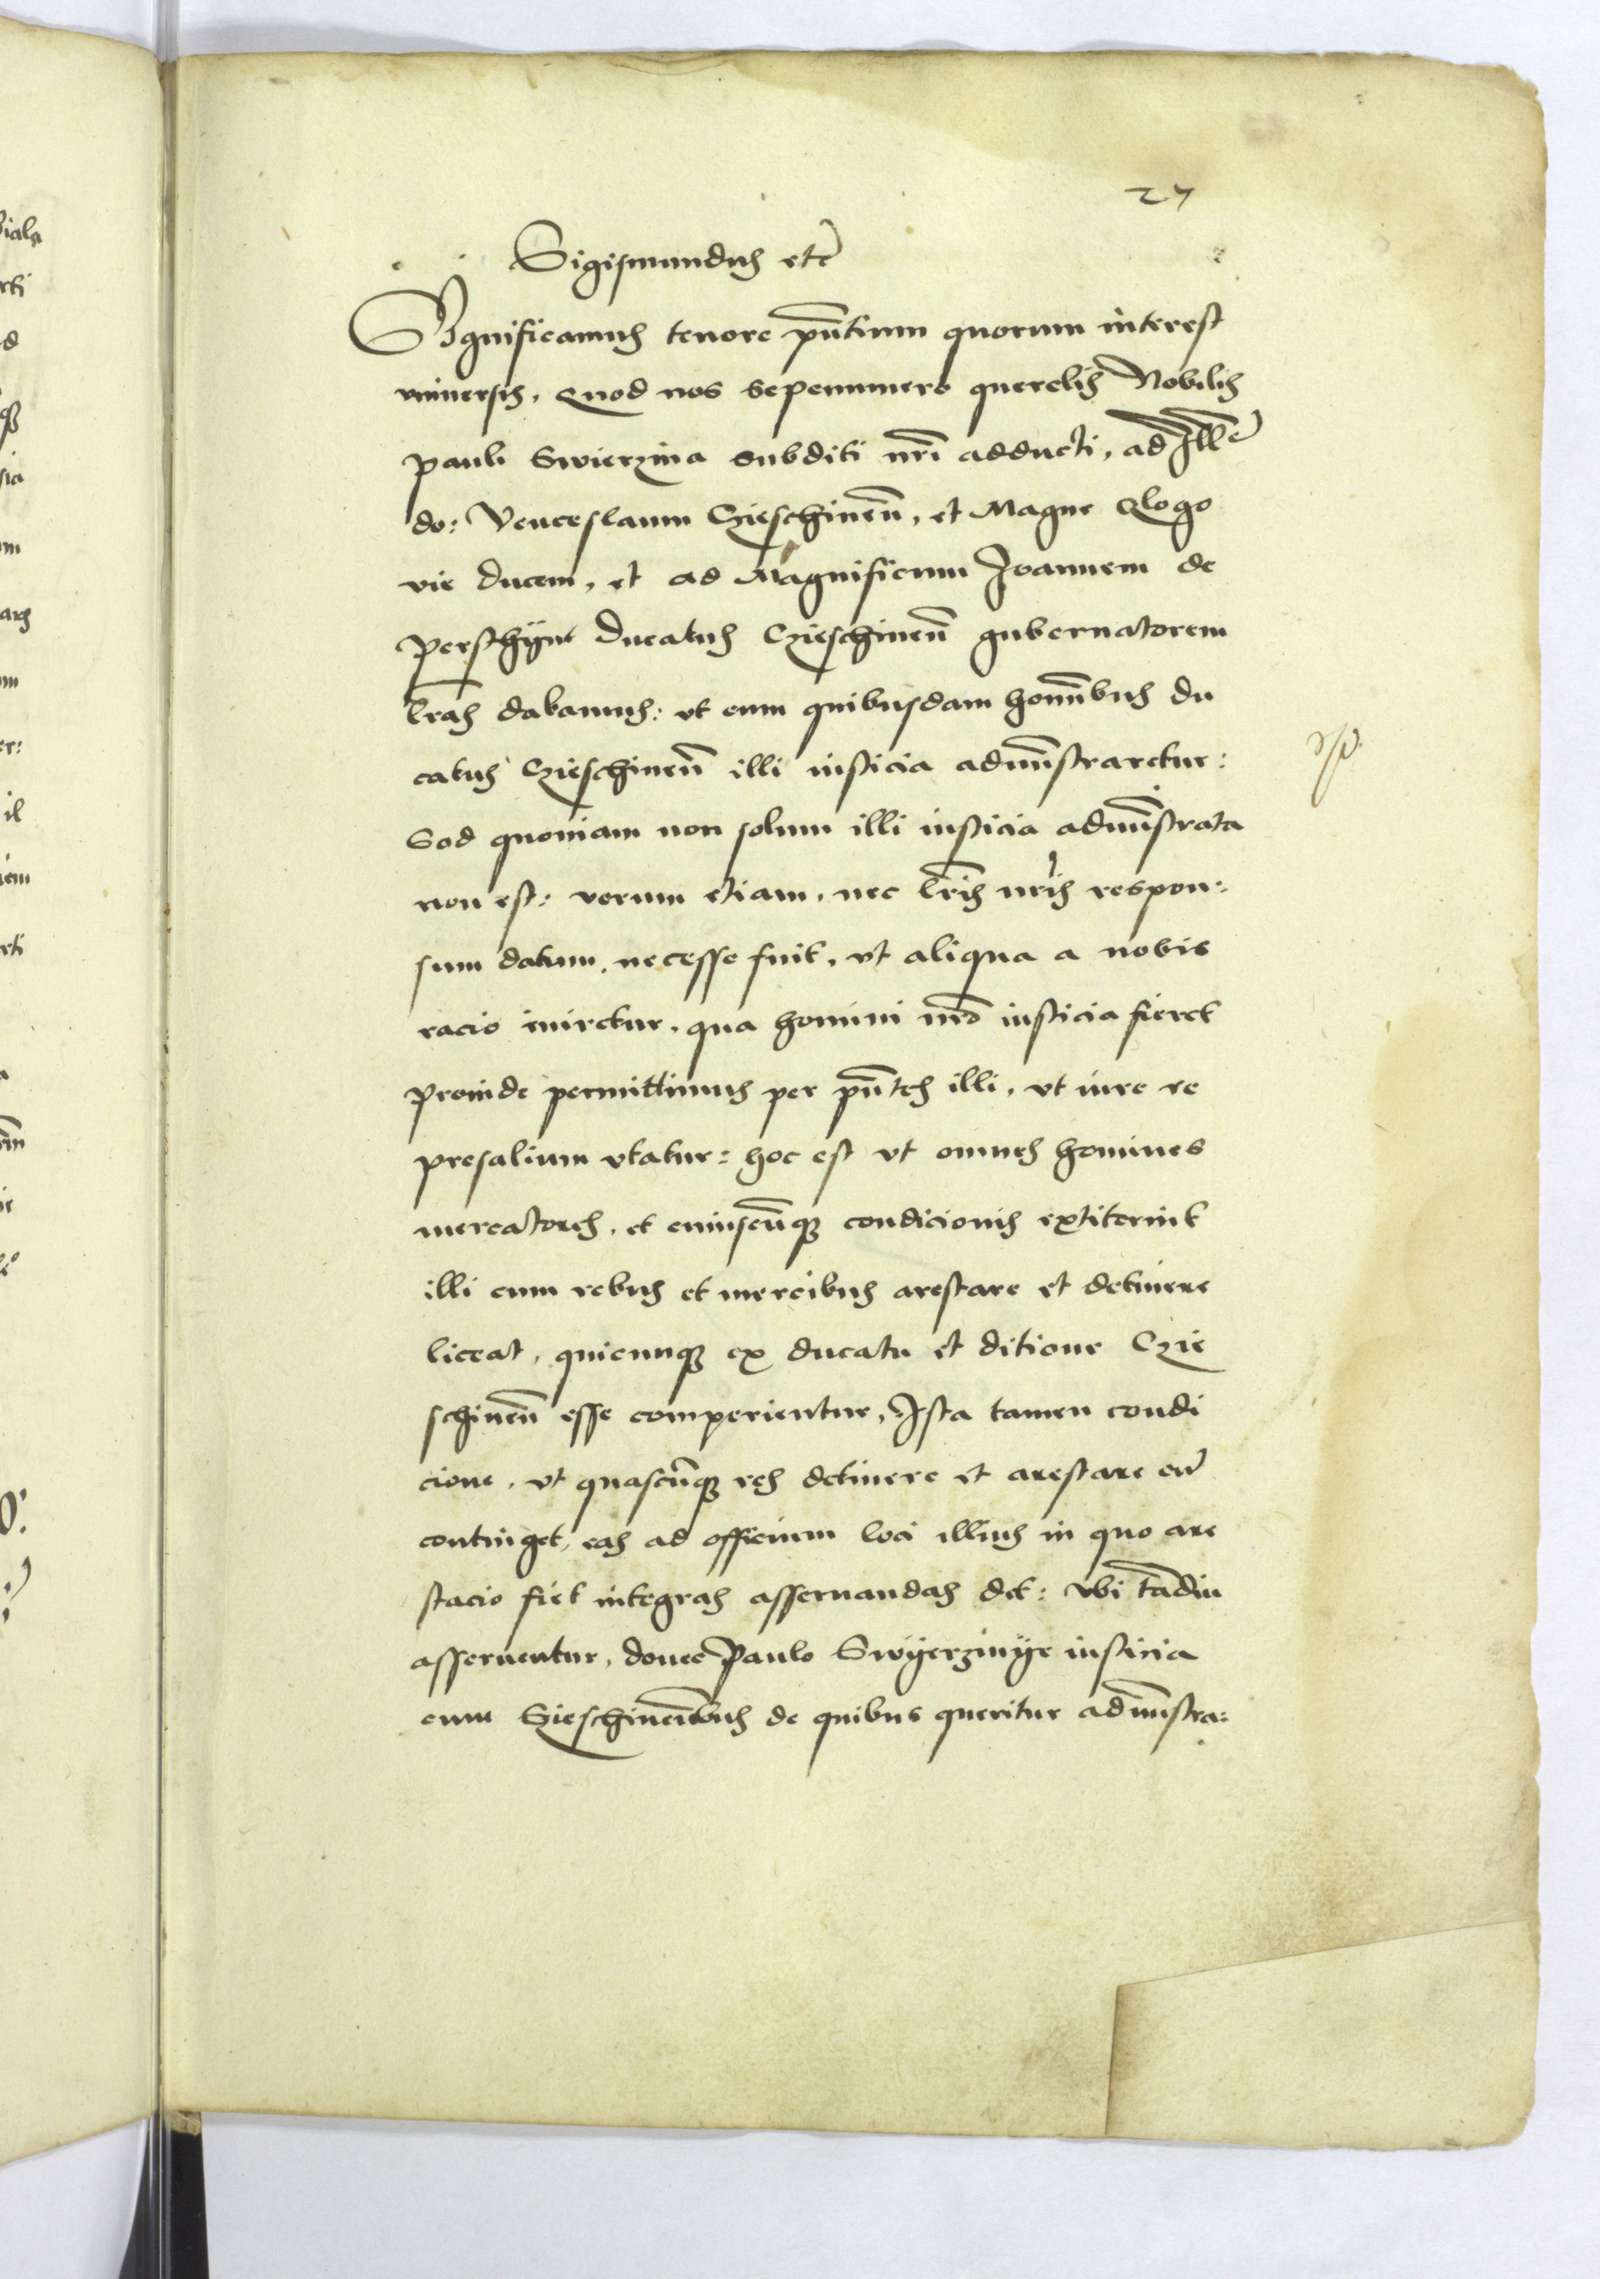 27
Sigismundus etc
Significamus tenore pñtium quorum interest
vniuersis, Quod nos sepenumero querelis Nobilis
Pauli Swierzina subditi nrĩ adducti, ad Illẽ
do: Venceslaum Czieschineñ, et Magne Glogo
vie ducem, et ad Magnificum Joannem de
Perschÿnt ducatus Czieschineñ gubernatorem
lrãs dabamus: vt cum quibusdam hominibus du
catus Czieschineñ illi iusticia adminĩstraretur:
Sed quoniam non solum illi iusticia adminĩstrata
non est: verum etiam, nec lrĩs nrĩs respon:
sum datum, necesse fuit, vt aliqua a nobis
racio iniretur, qua homini nrõ iusticia fieret
Proinde permittimus per pñtes illi, vt iure re
presalium vtatur: hoc est vt omnes homines
mercatores, et cuiuscũqz condicionis extiterint
illi cum rebus et mercibus arestare et detinere
liceat, quicunqz ex ducatu et ditione Czie
schineñ esse comperientur, Ista tamen condi
cione, vt quascũqz res detinere et arestare eũ
continget, eas ad officium loci illius in quo are
stacio fiet integras asseruandas det: vbi tãdiu
asseruentur, donec Paulo Swÿerzinÿe iusticia
cum Czieschineñbus de quibus queritur adminĩstra: